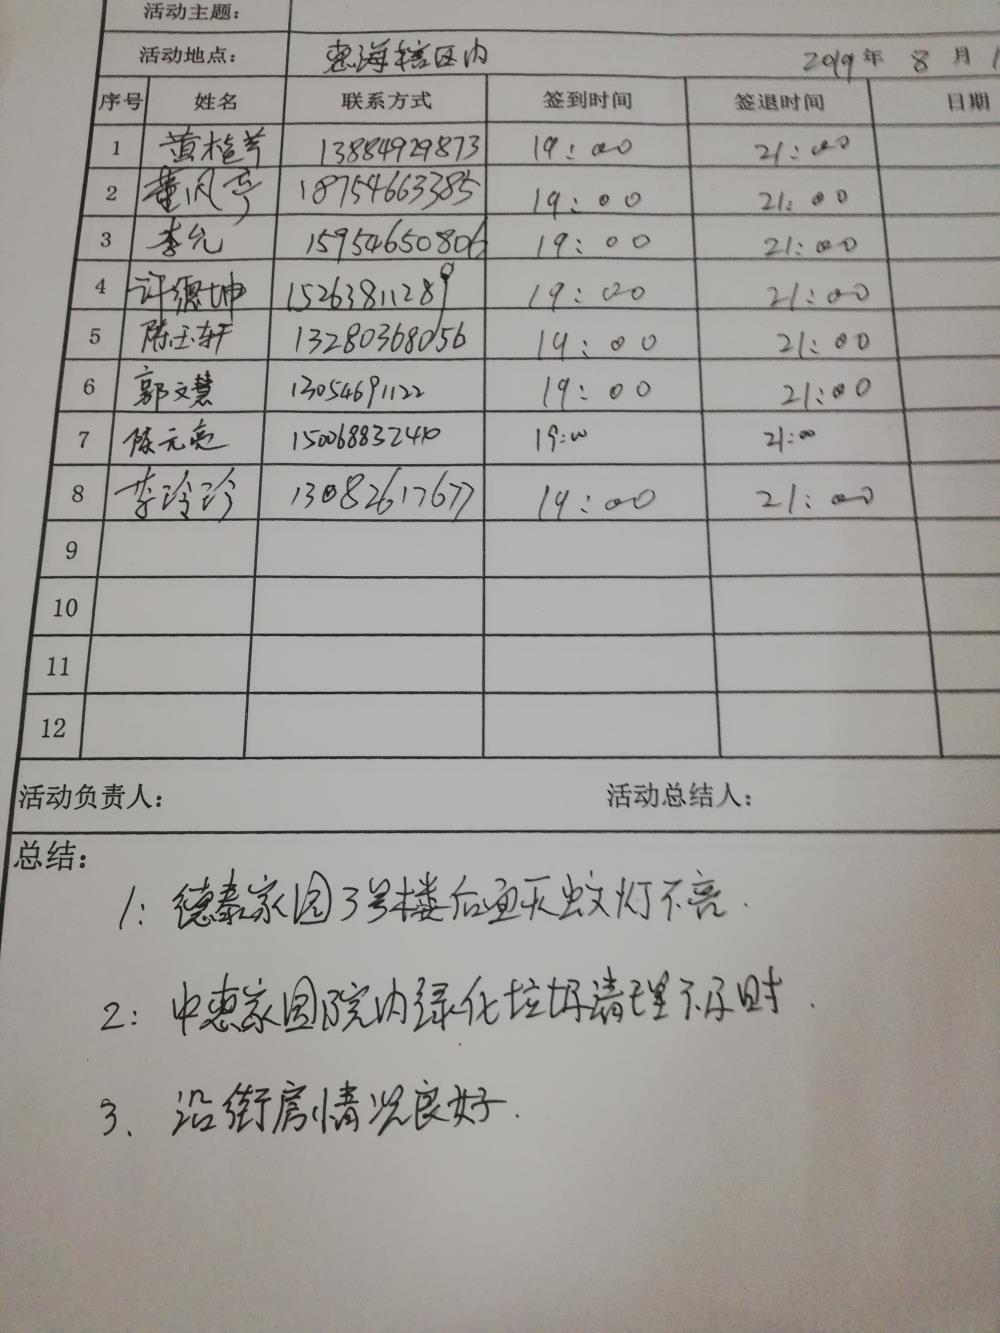 活动主题：
活动地点： 惠海辖区内 2019年 8月1
序号 姓名 联系方式 签到时间 签退时间 日期
1 13884929873 19:00 21:00
2 董风亭 18754663385 19:00 21:00
3 李允 15954650806 19:00 21:00
4 许德坤 15263811289 19:00 21:00
5 陈玉轩 13280368056 19:00 21:00
6 郭文慧 13054691122 19:00 21:00
7 陈元亮 150068832410 19:00 21:00
8 李玲珍 13082617677 19:00 21:00
9
10
11
12
活动负责人： 活动总结人：
总结：
1: 德泰家园3号楼后面灭蚊灯不亮.
2: 中惠家园院内绿化垃圾清理不及时.
3. 沿街房情况良好.